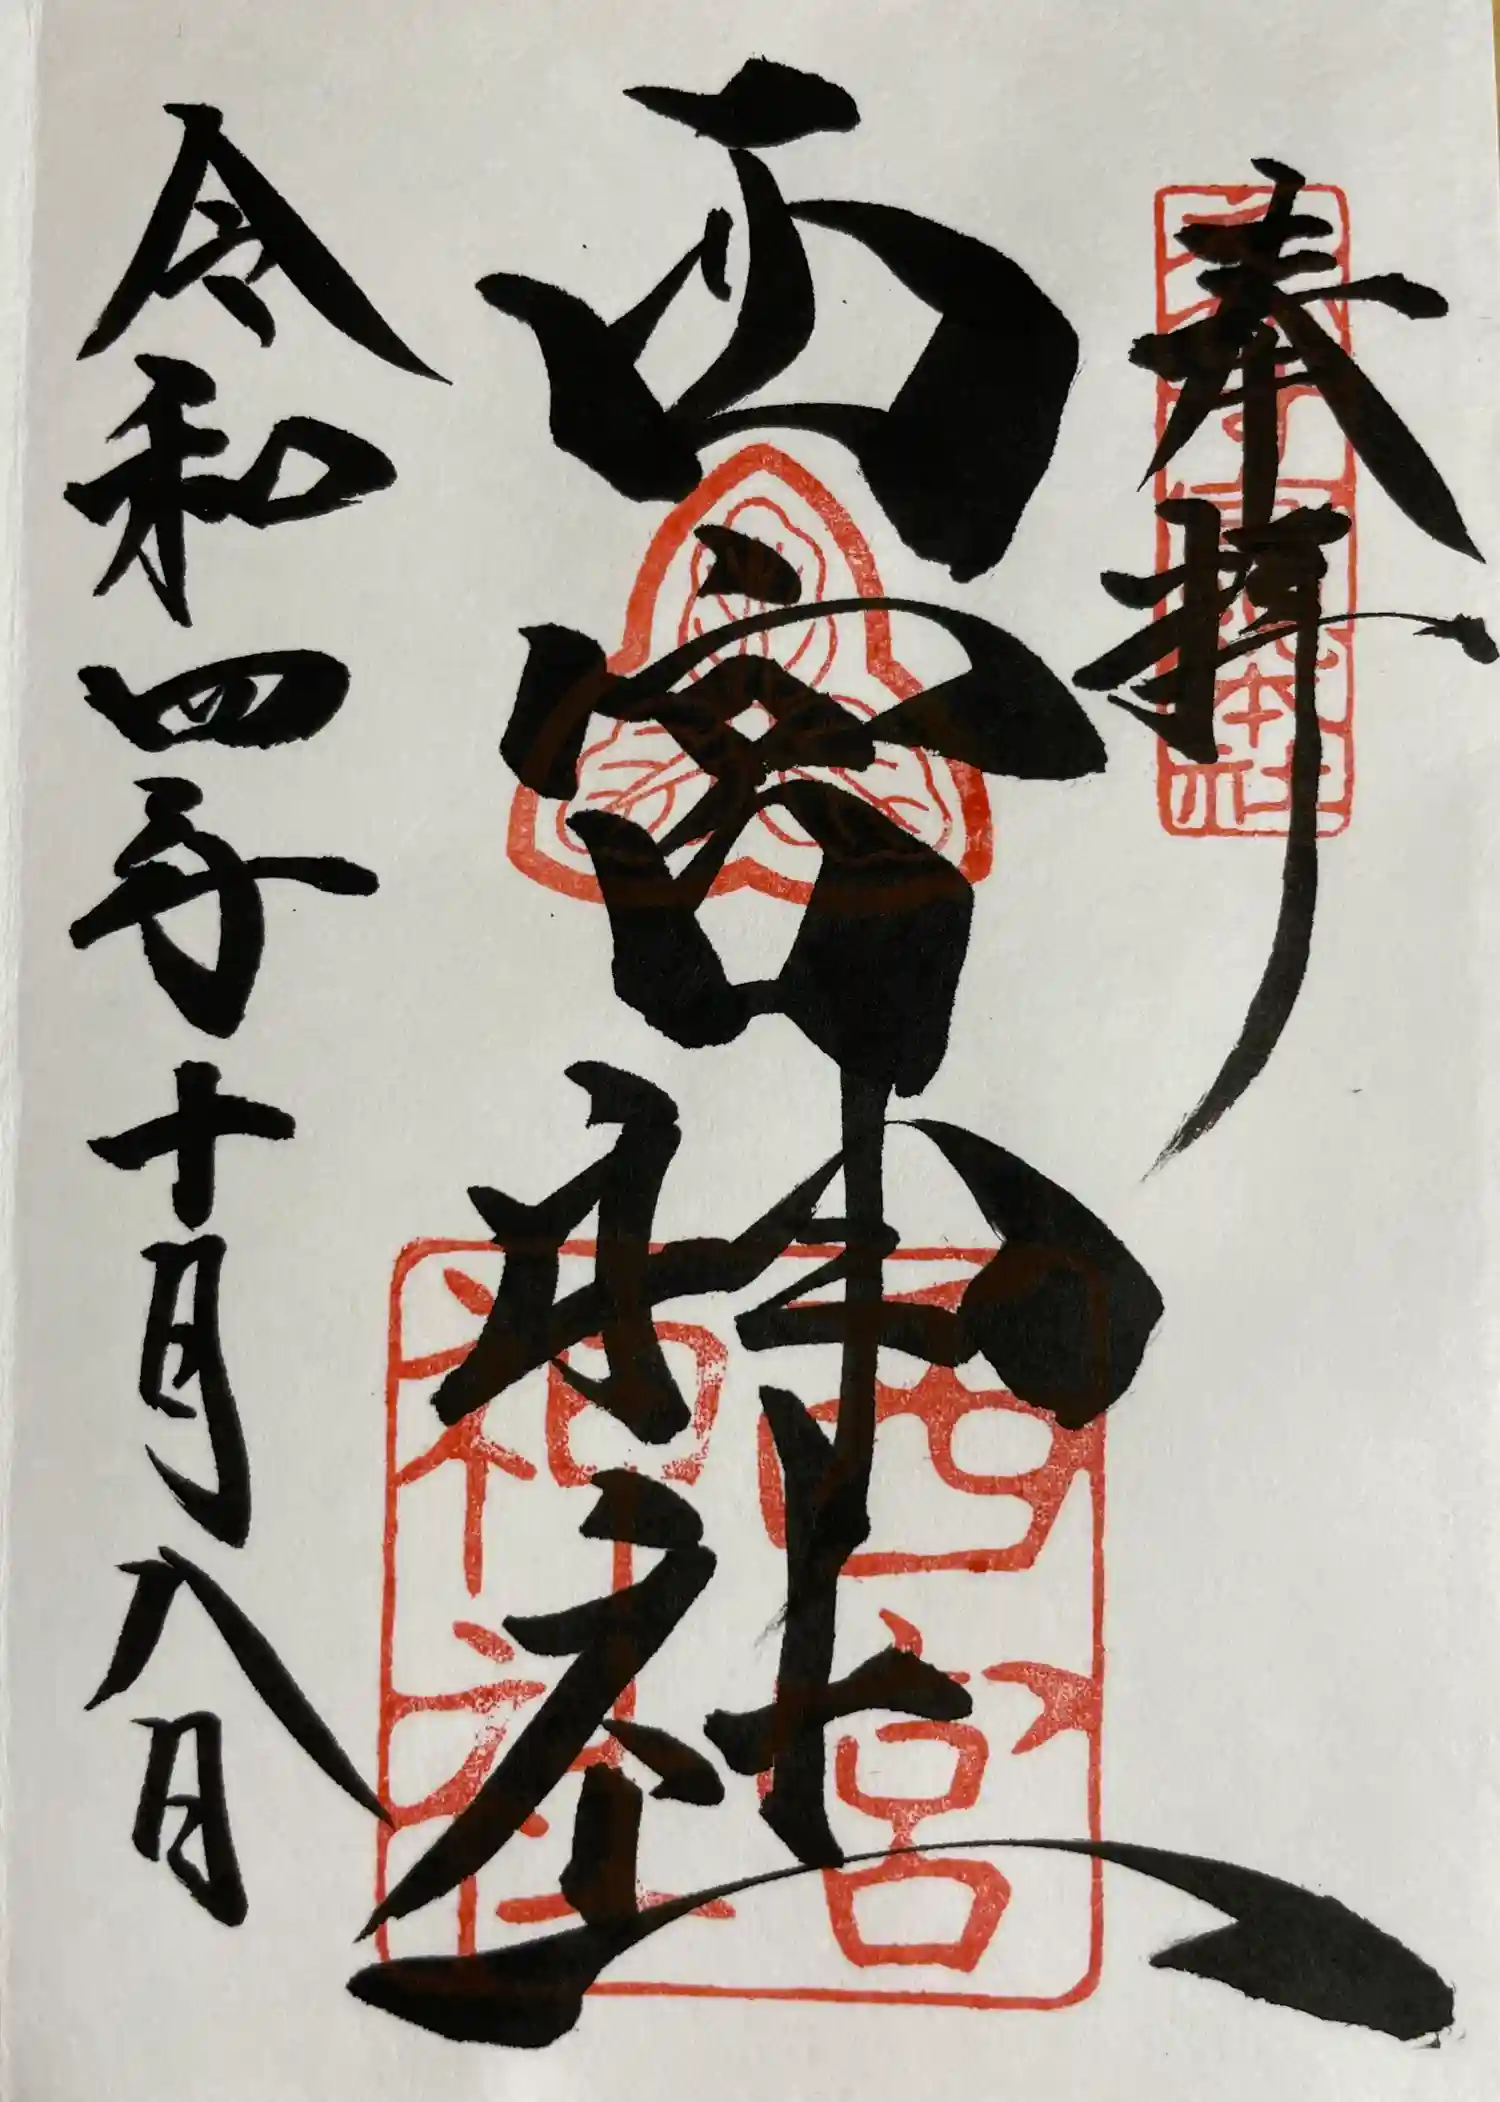 奉拝
西宮神社
令和四年十月八日
西宮神社